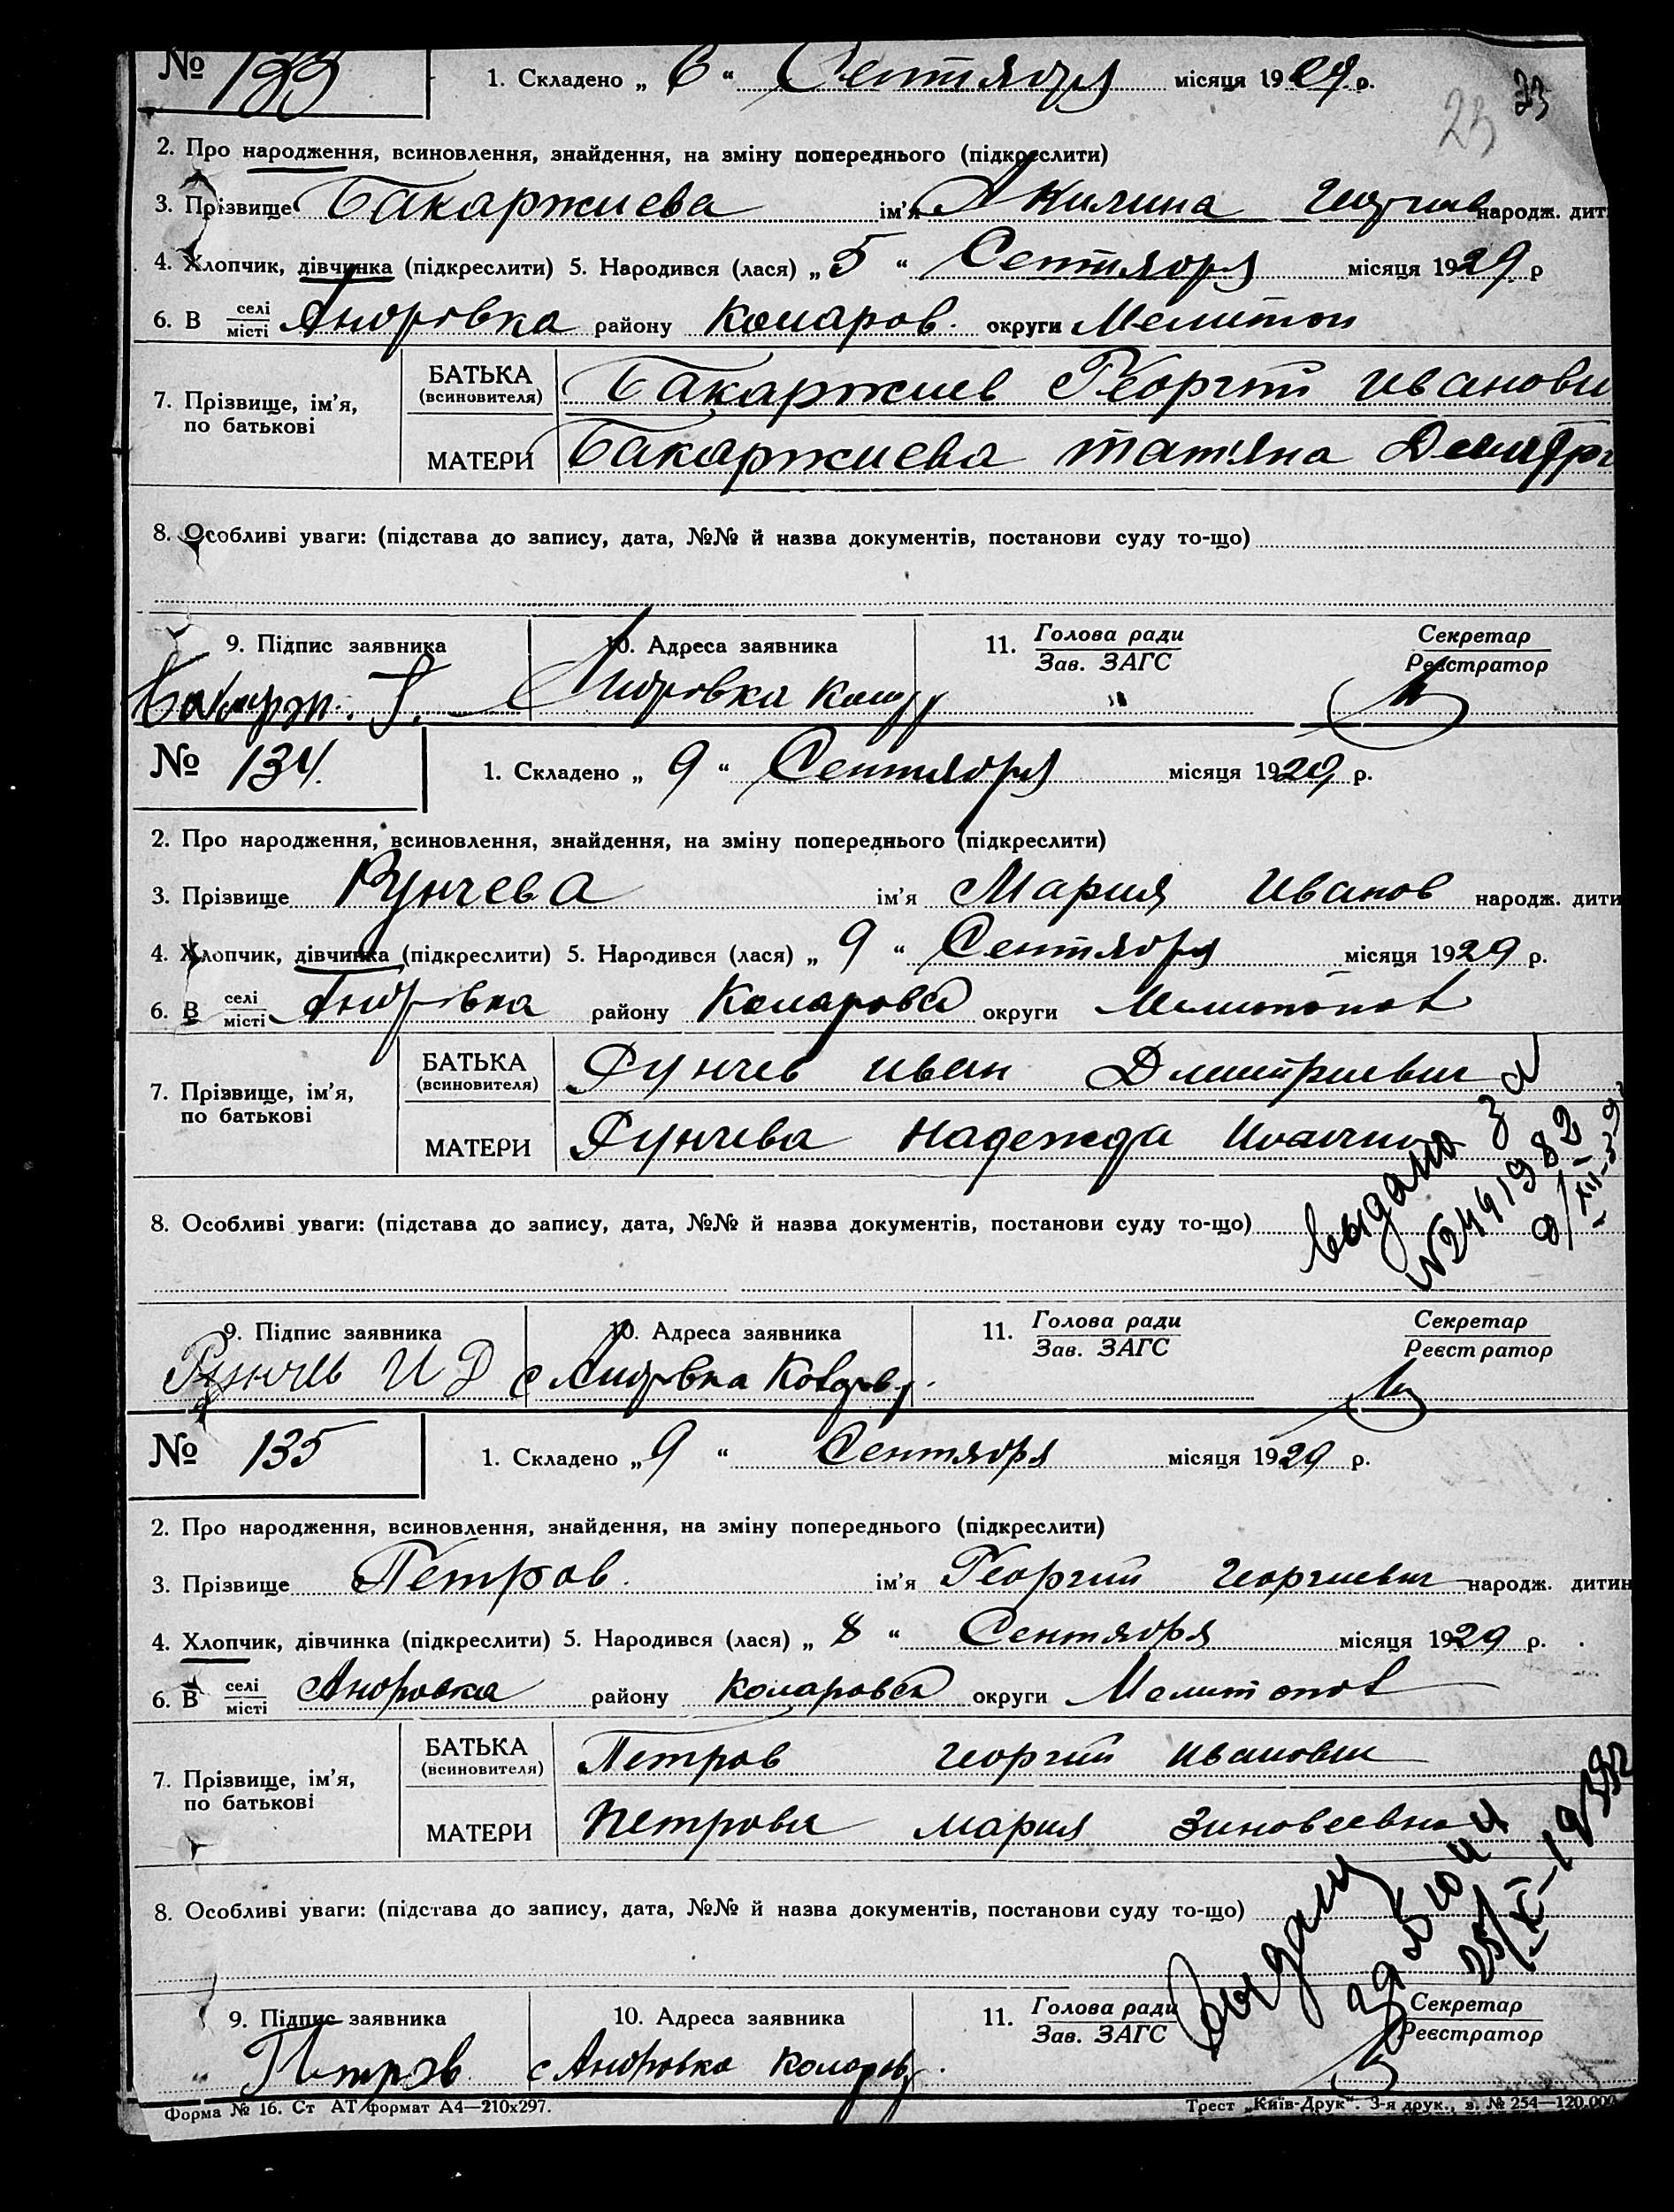 № 133
1. Складено „ 6 “ Сентября місяця 1929 р.
23 23
2. Про народження, всиновлення, знайдення, на зміну попереднього (підкреслити)
3. Прізвище Бакаржиева ім'я Акилина народж. дит
4. Хлопчик, дівчинка (підкреслити) 5. Народився (лася) „ 5 “ Сентября місяця 1929 р
6. В селі місті Андровка району Коларов. округи Мелитоп
7. Прізвище, ім'я, по батькові
БАТЬКА (всиновителя) Бакаржиев Георгий Иванови
МАТЕРИ Бакаржиева Татяна Дмитр
8. Особливі уваги: (підстава до запису, дата, №№ й назва документів, постанови суду то-що)
9. Підпис заявника 10. Адреса заявника 11. Голова ради Зав. ЗАГС Секретар Реєстратор
Бакарж. Г. Андровка Колар
№ 134.
1. Складено „ 9 “ Сентября місяця 1929 р.
2. Про народження, всиновлення, знайдення, на зміну попереднього (підкреслити)
3. Прізвище Рунчева ім'я Мария Иванов народж. дити
4. Хлопчик, дівчинка (підкреслити) 5. Народився (лася) „ 9 “ Сентября місяця 1929 р.
6. В селі місті Андровка району Коларовск округи Мелитопол
7. Прізвище, ім'я, по батькові
БАТЬКА (всиновителя) Рунчев Иван Дмитриевич
МАТЕРИ Рунчева Надежда
выдано за
№ 2441982
8. Особливі уваги: (підстава до запису, дата, №№ й назва документів, постанови суду то-що)
9. Підпис заявника 10. Адреса заявника 11. Голова ради Зав. ЗАГС Секретар Реєстратор
Рунчев И Д с Андровка
№ 135
1. Складено „ 9 “ Сентября місяця 1929 р.
2. Про народження, всиновлення, знайдення, на зміну попереднього (підкреслити)
3. Прізвище Петров. ім'я Георгий Георгиевич народж. дитин
4. Хлопчик, дівчинка (підкреслити) 5. Народився (лася) „ 8 “ Сентября місяця 1929 р.
6. В селі місті Андровка району Коларовск округи Мелитопол
7. Прізвище, ім'я, по батькові
БАТЬКА (всиновителя) Петров Георгий Иванович
МАТЕРИ Петрова Мария Зиновеевна
8. Особливі уваги: (підстава до запису, дата, №№ й назва документів, постанови суду то-що)
9. Підпис заявника 10. Адреса заявника 11. Голова ради Зав. ЗАГС Секретар Реєстратор
Петров с Андровка Коларов
Форма № 16. Ст АТ формат А4—210х297. Трест „Київ-Друк“. 3-я друк., з. № 254—120.000